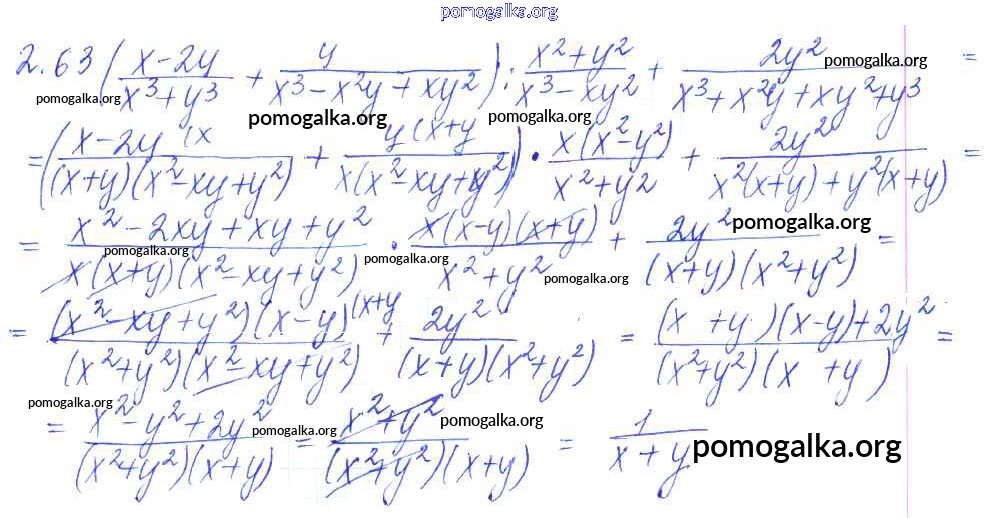 pomogalka.org
2.63 ((x-2y)/(x³+y³) + y/(x³-x²y+xy²)) : (x²+y²)/(x³-xy²) + 2y²/(x³+x²y+xy²+y³) =
pomogalka.org pomogalka.org pomogalka.org pomogalka.org
= ((x-2y (x)/((x+y)(x²-xy+y²)) + (y(x+y)/(x(x²-xy+y²))) · (x(x²-y²))/(x²+y²) + 2y²/(x²(x+y)+y²(x+y)) =
= (x²-2xy+xy+y²)/(x(x+y)(x²-xy+y²)) · (x(x-y)(x+y))/(x²+y²) + 2y²/((x+y)(x²+y²)) =
pomogalka.org pomogalka.org pomogalka.org pomogalka.org
= ((x²-xy+y²)(x-y)(x+y)/((x²+y²)(x²-xy+y²)) + 2y²/((x+y)(x²+y²)) = ((x+y)(x-y)+2y²)/((x²+y²)(x+y)) =
= (x²-y²+2y²)/((x²+y²)(x+y)) = (x²+y²)/((x²+y²)(x+y)) = 1/(x+y)
pomogalka.org pomogalka.org pomogalka.org pomogalka.org